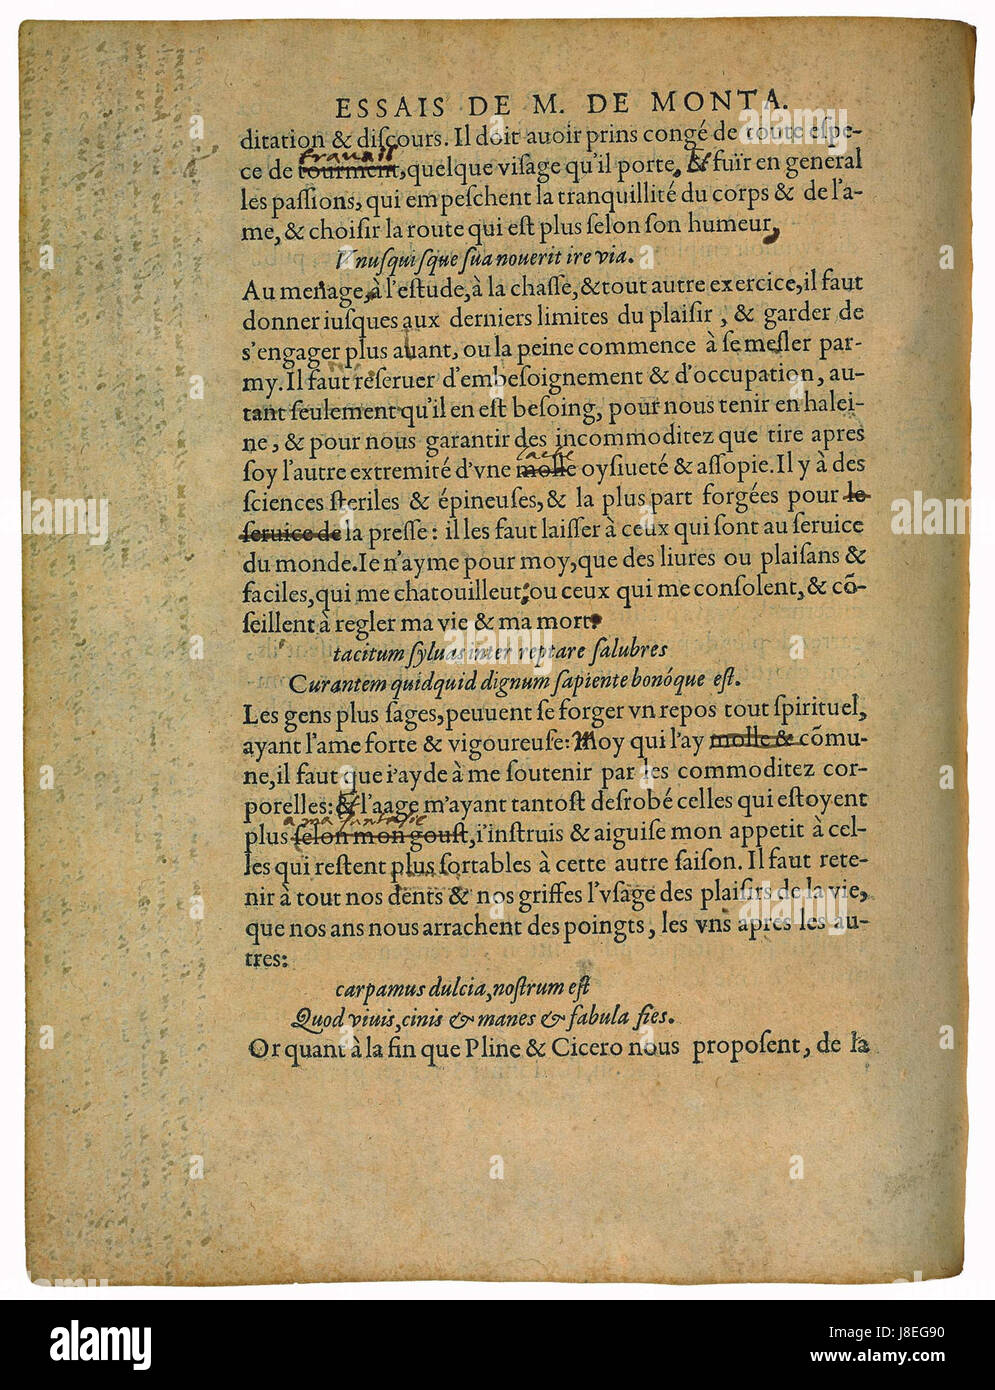 ESSAIS DE M. DE MONTA.
ditation & diſcours. Il doit auoir prins congé de toute eſpe-
trauail
ce de tourment, quelque viſage qu'il porte, & fuïr en general
les paſſions, qui empeſchent la tranquillité du corps & de l'a-
me, & choiſir la route qui eſt plus ſelon ſon humeur,
Vnuſquiſque ſua nouerit ire via.
Au menage, à l'eſtude, à la chaſſe, & tout autre exercice, il faut
donner iuſques aux derniers limites du plaiſir, & garder de
s'engager plus auant, ou la peine commence à ſe meſler par-
my. Il faut reſeruer d'embeſoignement & d'occupation, au-
tant ſeulement qu'il en eſt beſoing, pour nous tenir en halei-
ne, & pour nous garantir des incommoditez que tire apres
ſoy l'autre extremité d'vne molle oyſiueté & aſſopie. Il y à des
ſciences ſteriles & épineuſes, & la plus part forgées pour le
ſeruice de la preſſe: il les faut laiſſer à ceux qui ſont au ſeruice
du monde. Ie n'ayme pour moy, que des liures ou plaiſans &
faciles, qui me chatouillent, ou ceux qui me conſolent, & cõ-
ſeillent à regler ma vie & ma mort:
tacitum ſyluas inter reptare ſalubres
Curantem quidquid dignum ſapiente bonóque eſt.
Les gens plus ſages, peuuent ſe forger vn repos tout ſpirituel,
ayant l'ame forte & vigoureuſe: Moy qui l'ay molle & cõmu-
ne, il faut que i'ayde à me ſoutenir par les commoditez cor-
porelles: & l'aage m'ayant tantoſt deſrobé celles qui eſtoyent
a ma fantasie
plus ſelon mon gouſt, i'inſtruis & aiguiſe mon appetit à cel-
les qui reſtent plus ſortables à cette autre ſaiſon. Il faut rete-
nir à tout nos dents & nos griffes l'vſage des plaiſirs de la vie,
que nos ans nous arrachent des poingts, les vns apres les au-
tres:
carpamus dulcia, noſtrum eſt
Quod viuis, cinis & manes & fabula fies.
Or quant à la fin que Pline & Cicero nous propoſent, de la
alamy
Image ID: J8EG90
www.alamy.com